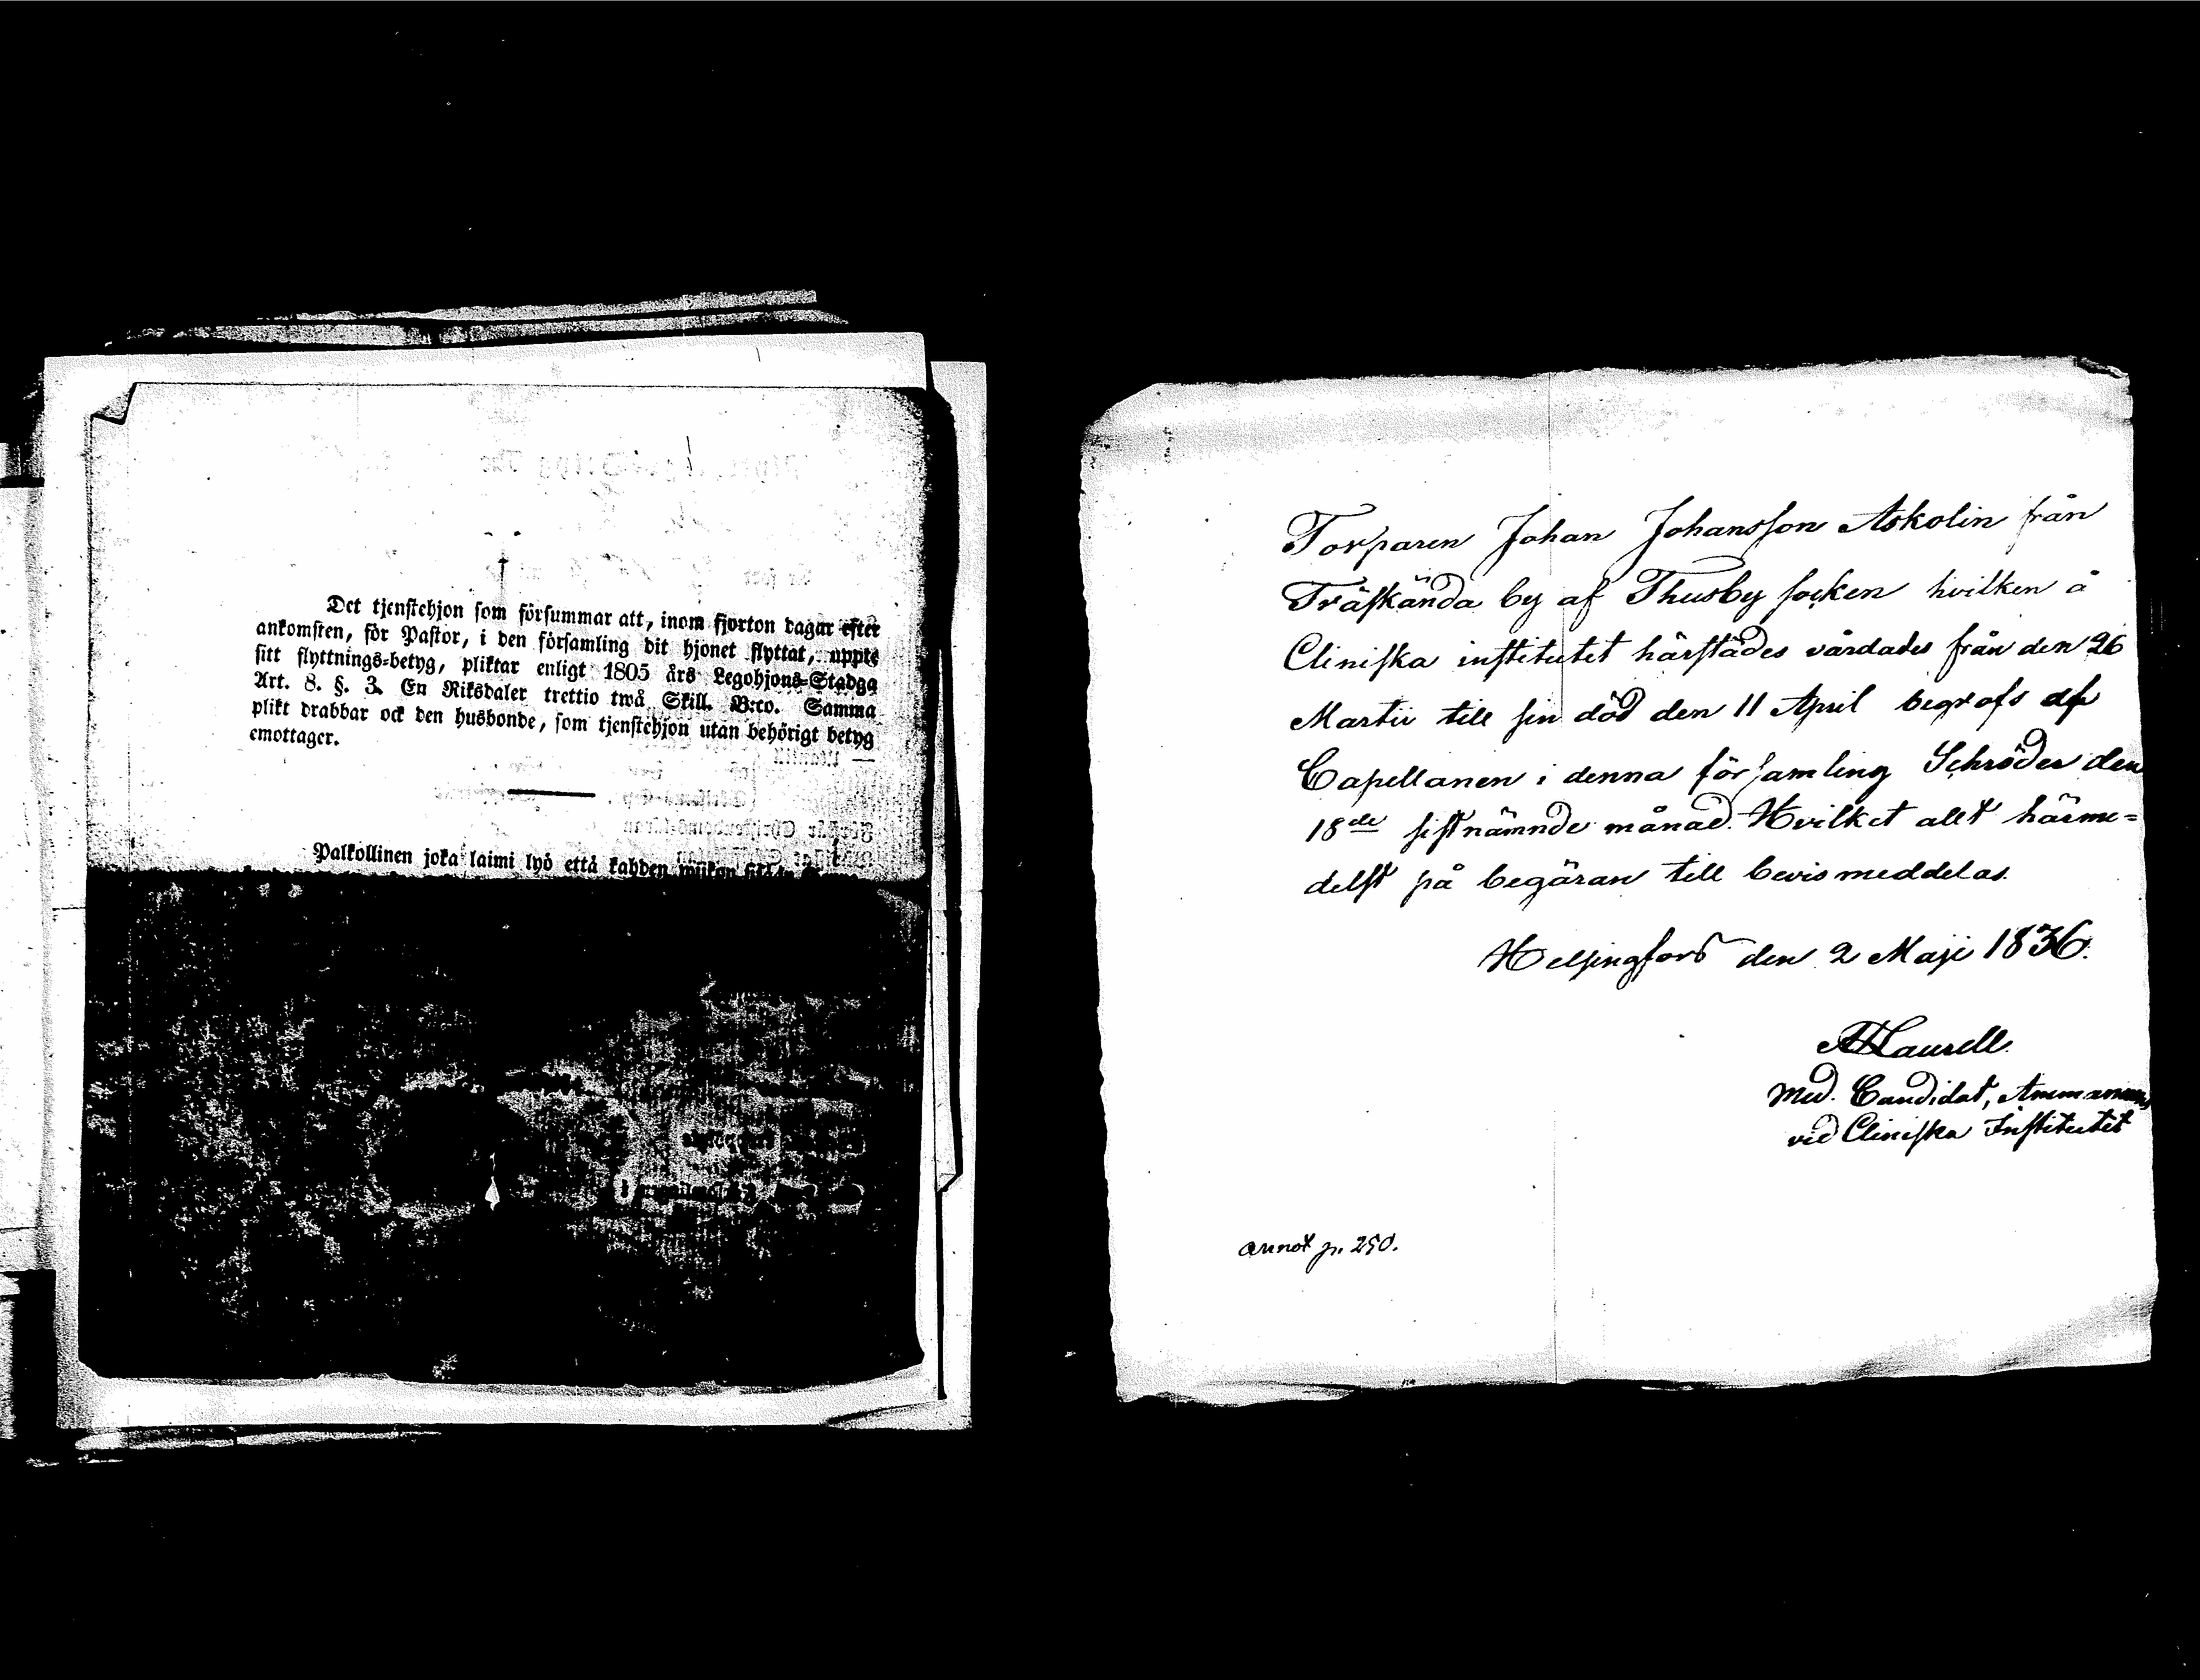 Det tjenstehjon som försummar att, inom fjorton dagar efter
ankomsten, för Pastor, i den församling dit hjonet flyttat, uppte
sitt flyttnings-betyg, pliktar enligt 1805 års Legohjons-Stadga
Art. 8. §. 3. En Riksdaler trettio twå Skill. B:co. Samma
plikt drabbar ock den husbonde, som tjenstehjon utan behörigt betyg
emottager.
Palkollinen joka laimi lyö että kahden wiikon
Torparen Johan Johansson Askolin från
Träskända by af Thusby socken hvilken å
Cliniska institutet härstädes vårdades från den 26
Martii till sin död den 11 April begrofs af
Capellanen i denna församling Schröder den
18de sistnämnde månad. Hvilket allt härme=
delst på begäran till bevis meddelas.
Helsingfors den 2 Maji 1836.
Laurell.
Med. Candidat, Amanuens
vid Cliniska Institutet
annot p. 250.